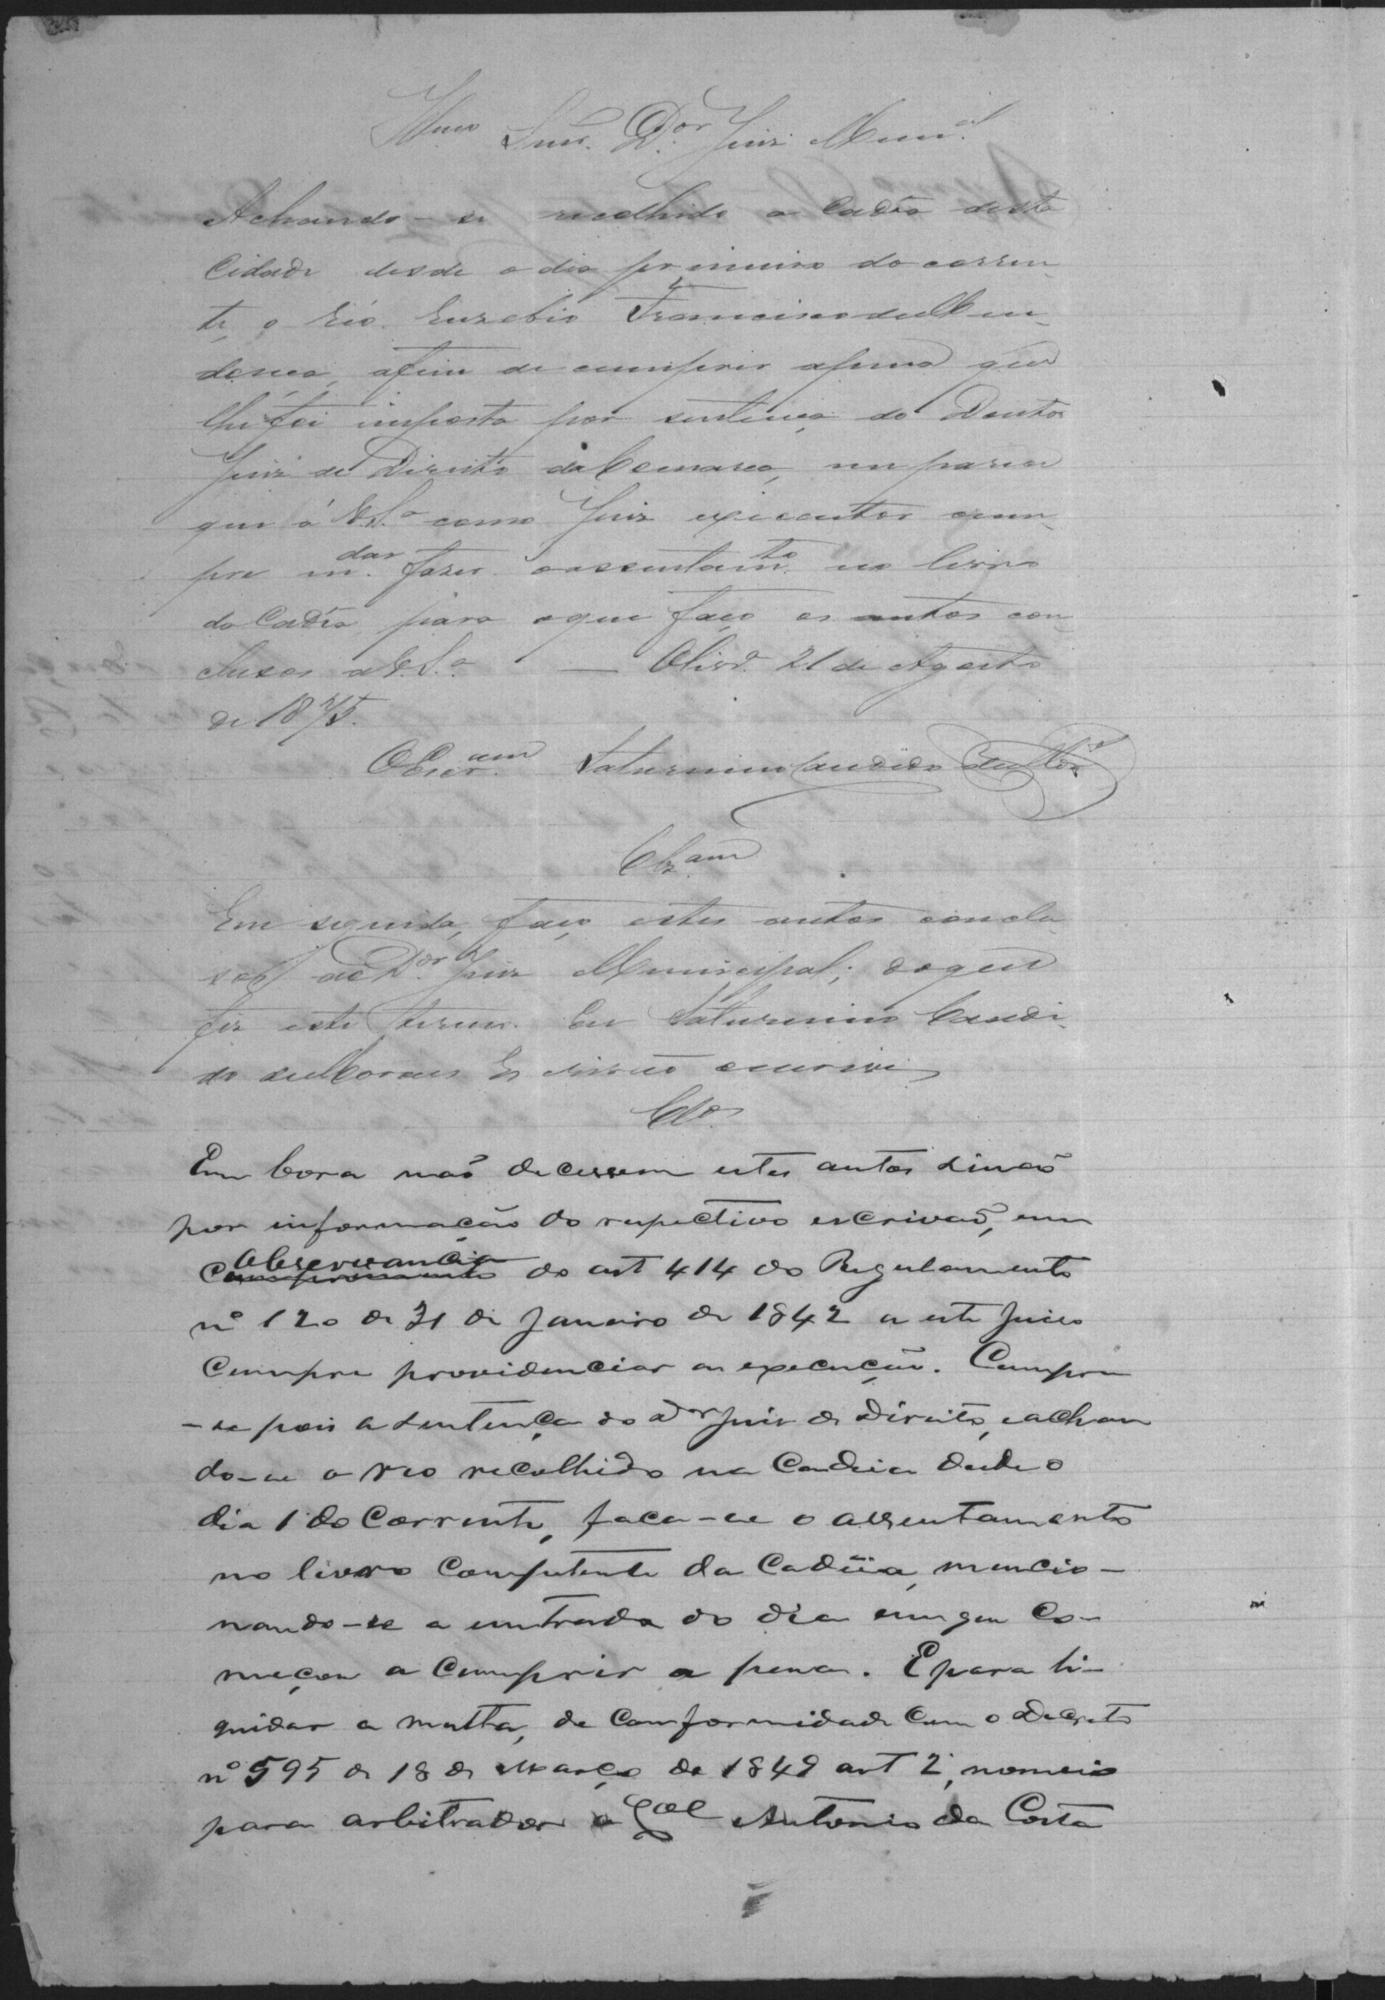 Illmo Snr. Dor. Juiz Munal.
Achando-se recolhido a Cadêa desta
Cidade desde o dia primeiro do corren-
te, o réo Euzebio Francisco de Men-
donca, afim de cumprir apena que
lhe foi imposta por sentença do Doutor
Juiz de Direito da Comarca, me parece
que á V.S.a como Juiz executor cum-
pre mdar. fazer o assentamto. no livro
da Cadêa, para o que faço os autos con-
clusos a V.S.a. — 21 de Agosto
de 1875.
O Escram. Saturnino Candido de Mos.
Clzam
Em seguida, faço estes autos conclu-
sos ao Dor. Juiz Municipal; do que
fiz este termo. Eu Saturnino Candi-
do de Moraes Escrivão escrivi
Clos.
Em bora não decessem estes autos sinão
por informação do respectivo escrivão, em
observancia do art 414 do Regulamento
nº 120 de 31 de Janeiro de 1842 a este Juizo
cumpre providenciar a execução. Cumpra
-se pois a sentença do Dor Juiz de Direito, e achan
do-se o reo recolhido na Cadeia desde o
dia 1º do corrente, faça-se o assentamento
no livro competente da Cadêia, mencio-
nando-se a entrada do dia em que co-
meçou a cumprir a pena. E para li-
quidar a multa, de conformidade com o Decreto
nº 595 de 18 de Março de 1849 art 2º, nomeio
para arbitrador o Antonio da Costa